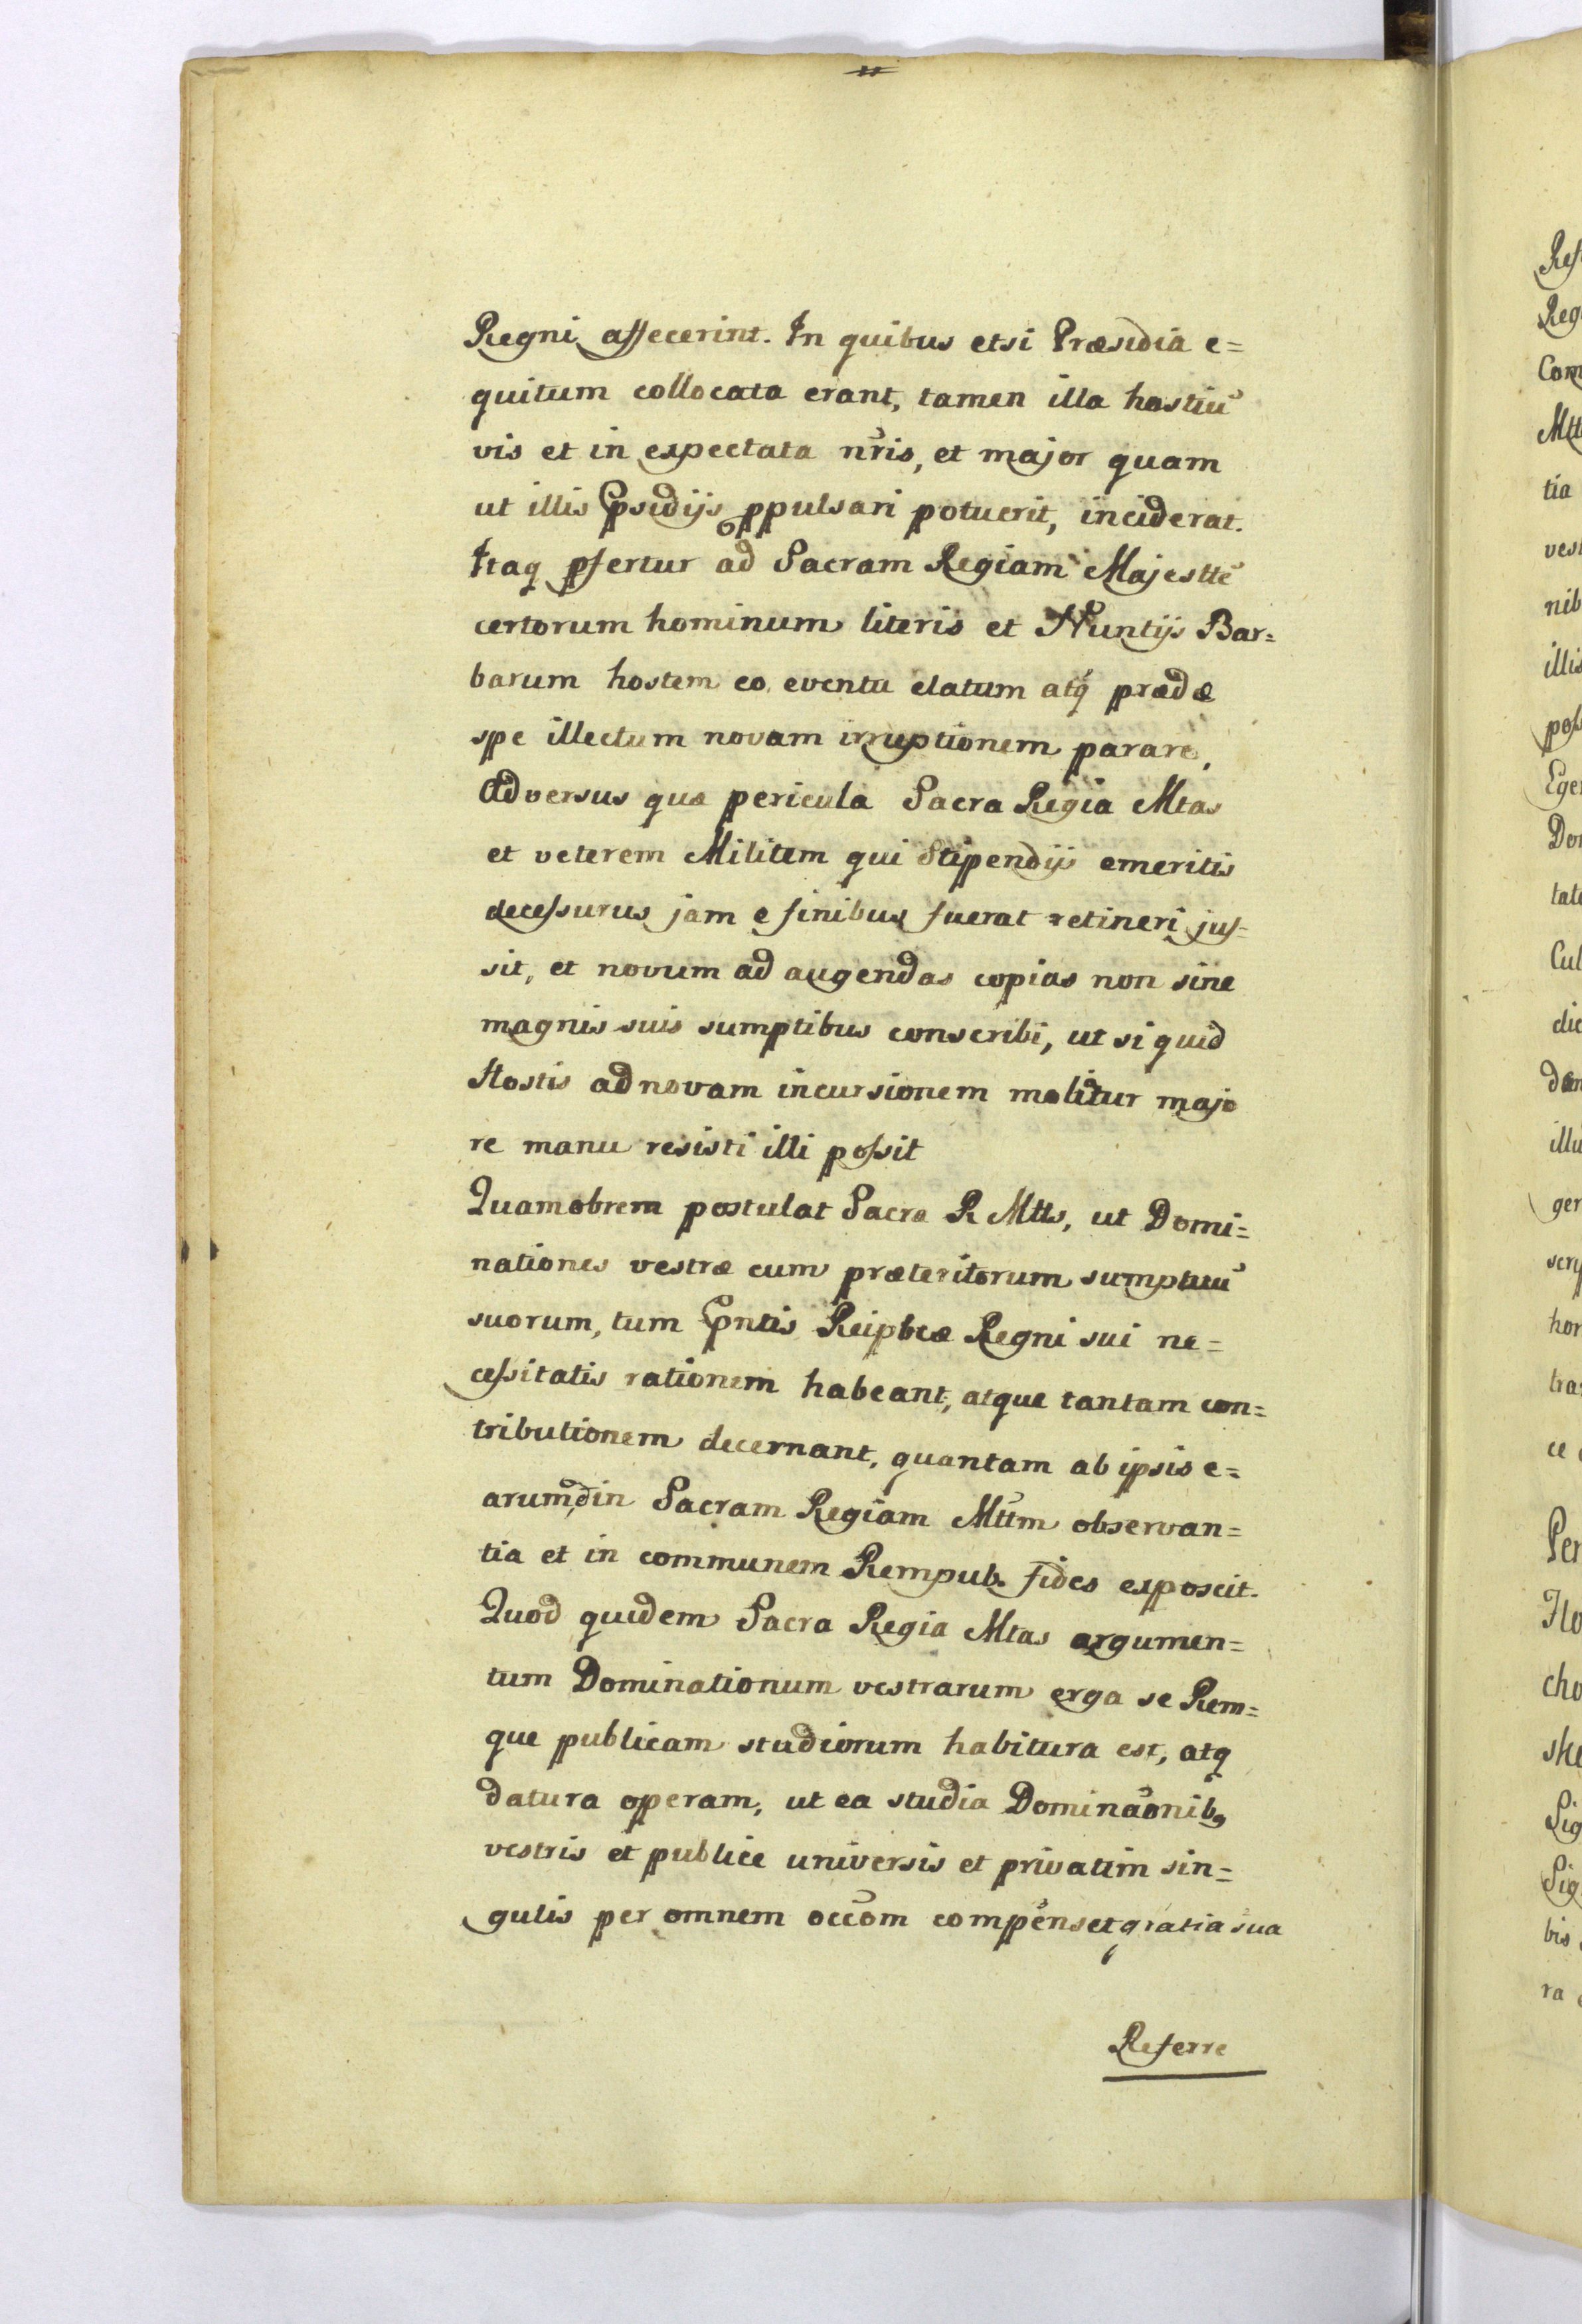 Regni affecerint. In quibus etsi Præsidia e=
quitum collocata erant, tamen illa hostiū
vis et in expectata nr̃is, et major quam
ut illis p̃sidijs ꝓpulsari potuerit, inciderat.
Itaq pfertur ad Sacram Regiam Majesttē
certorum hominum literis et Nuntijs Bar=
barum hostem eo eventu elatum atq́ prædæ
spe illectum novam irruptionem parare,
Adversus quæ pericula Sacra Regia Mtas
et veterem Militem qui Stipendijs emeritis
decessurus jam e finibus fuerat retineri jus=
sit, et novum ad augendas copias non sine
magnis suis sumptibus conscribi, ut si quid
Hostis ad novam incursionem molitur majo
re manu resisti illi possit
Quamobrem postulat Sacra R Mtts, ut Domi=
nationes vestræ cum præteritorum sumptuū
suorum, tum p̃ntis Reipbcæ Regni sui ne=
cessitatis rationem habeant, atque tantam con=
tributionem decernant, quantam ab ipsis e=
arumdin Sacram Regiam Mttm̃ observan=
tia et in communem Rempub. fides exposcit.
Quod quidem Sacra Regia Mtas argumen=
tum Dominationum vestrarum erga se Rem=
que publicam studiorum habitura est, atq
datura operam, ut ea studia Domināonibꝫ
vestris et publice universis et privatim sin=
gulis per omnem occōm compenset gratia sua
Referre